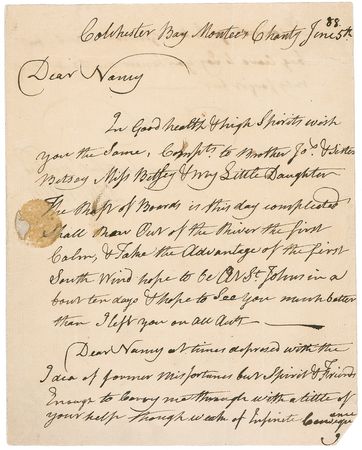 88.
Colchester Bay Chanty June 5th
Dear Nancy
In Good health & high Spirits wish
you the Same, Compts to Brother Jos & Sister
Betsey Miss Betsey & my Little Daughter
The Raft of Boards is this day complicated
Shall Row Out of the River the first
Calm, & Take the Advantage of the first
South Wind hope to be At St. Johns in a
bout ten days & hope to See you much better
than I left you on all Acts
Dear Nancy at times depresed with the
Idea of former Misfortunes but Spirit & Friends
Enough to Carry me through with a little of
your help though weak of Infinite